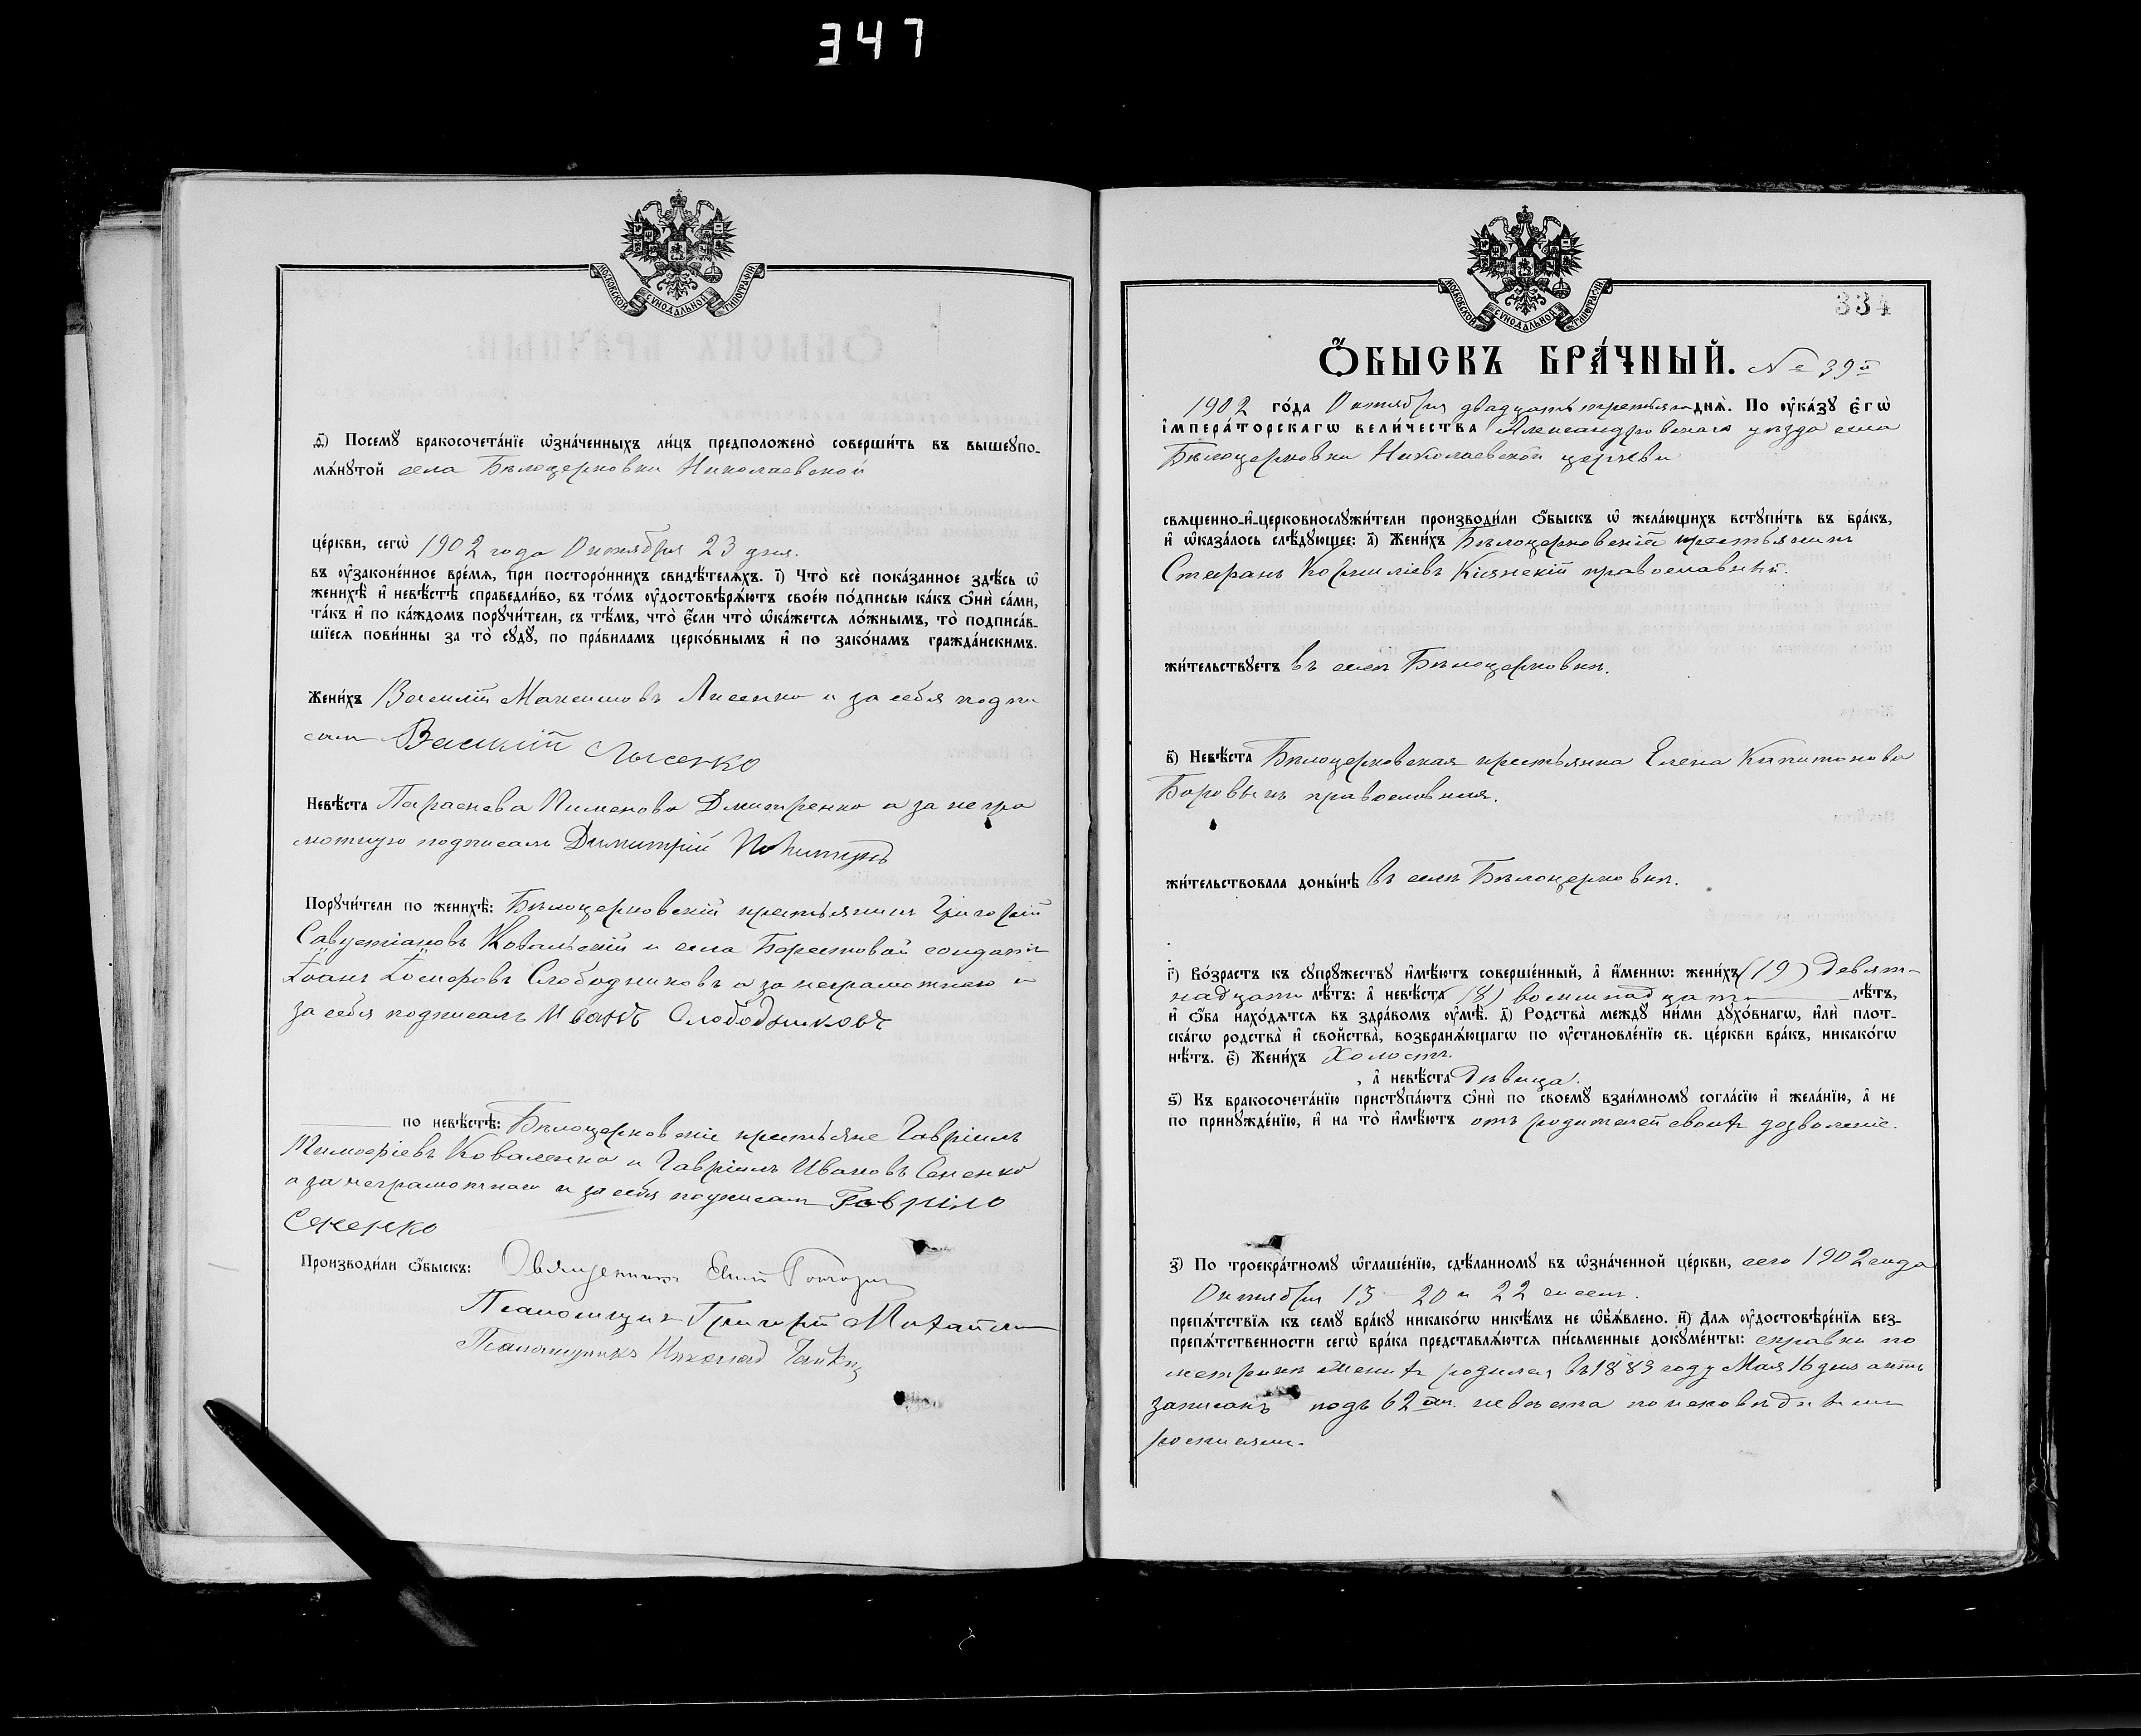 347
МОСКОВСКОЙ СѴНОДАЛЬНОЙ ТИПОГРАФІИ
ѳ҃) Посемꙋ бракосочета́нїе ѡ҆зна́ченныхъ ли́цъ предположено̀ соверши́ть въ вышеꙋпо-
мѧ́нꙋтой села Бѣлоцерковки Николаевской
це́ркви, сегѡ̀ 1902 года Октября 23 дня.
въ ᲂу҆законе́нное вре́мѧ, при посторо́ннихъ свидѣ́телѧхъ. і҃) Что̀ всѐ пока́занное здѣ́сь ѡ҆
женихѣ̀ и҆ невѣ́стѣ справедли́во, въ то́мъ ᲂу҆достовѣрѧ́ютъ свое́ю по́дписью ка́къ ѻ҆нѝ са́ми,
та́къ и҆ по ка́ждомъ порꙋчи́тели, съ тѣ́мъ, что̀ є҆́сли что̀ ѡ҆ка́жется ло́жнымъ, то̀ подписа́в-
шїеся пови́нны за то̀ сꙋдꙋ̀, по пра́виламъ церко́внымъ и҆ по зако́намъ гражда́нскимъ.
Жени́хъ Василій Максимовъ Лисенко и за себя подпи
салъ Василій Лысенко
Невѣ́ста Параскева Пименова Дмитренко а за негра
мотную подписалъ Димитрій
Порꙋчи́тели по женихѣ̀: Бѣлоцерковскій крестьянинъ Григорій
Савустіановъ Ковальскій и села Берестовой солдатъ
Іоанъ Іосифовъ Слободниковъ а за неграмотнаго и
за себя подписалъ Иванъ Слободниковъ
по невѣ́стѣ: Бѣлоцерковскіе крестьяне Гавріилъ
Тимофіевъ Коваленко и Гавріилъ Ивановъ Сененко
а за неграмотнаго и за себя подписалъ Гаврііло
Сененко
Производи́ли ѻ҆́быскъ: Священникъ
Псаломщикъ Григорій
Псаломщикъ Николай
МОСКОВСКОЙ СѴНОДАЛЬНОЙ ТИПОГРАФІИ
334
Ѻ҆́БЫСКЪ БРА́ЧНЫЙ. № 39й
1902 го́да Октября двадцать третьяго днѧ̀. По ᲂу҆ка́зꙋ є҆гѡ̀
і҆мпера́торскагѡ вели́чества Александровскаго уѣзда села
Бѣлоцерковки Николаевской церкви
свѧщенно-и҆-церковнослꙋжи́тели производи́ли ѻ҆́быскъ ѡ҆ жела́ющихъ встꙋпи́ть въ бра́къ,
и҆ ѡ҆каза́лось слѣ́дꙋющее: а҃) Жени́хъ Бѣлоцерковскій крестьянинъ
Стефанъ Корниліевъ Кіянскій православный.
жи́тельствꙋетъ въ селѣ Бѣлоцерковкѣ.
в҃) Невѣ́ста Бѣлоцерковская крестьянка Елена Капитонова
Боровикъ православная.
жи́тельствовала доны́нѣ въ селѣ Бѣлоцерковкѣ.
г҃) Во́зрастъ къ сꙋпрꙋ́жествꙋ и҆мѣ́ютъ соверше́нный, а҆ и҆́меннѡ: жени́хъ (19) девят-
надцати лѣ́тъ: а҆ невѣ́ста (18) восемнадцати лѣ́тъ,
и҆ ѻ҆́ба нахо́дѧтсѧ въ здра́вомъ ᲂу҆мѣ̀. д҃) Родства̀ междꙋ̀ ни́ми дꙋхо́внагѡ, и҆лѝ плот-
ска́гѡ родства̀ и҆ сво́йства, возбранѧ́ющагѡ по ᲂу҆становле́нїю св. це́ркви бра́къ, никако́гѡ
нѣ́тъ. є҃) Жени́хъ Холостъ.
, а҆ невѣ́ста Дѣвица.
ѕ҃) Къ бракосочета́нїю пристꙋпа́ютъ ѻ҆нѝ по своемꙋ̀ взаи́мномꙋ согла́сїю и҆ жела́нїю, а҆ не
по принꙋжде́нїю, и҆ на то̀ и҆мѣ́ютъ отъ родителей своихъ дозволеніе.
з҃) По троекра́тномꙋ ѡ҆глаше́нїю, сдѣ́ланномꙋ въ ѡ҆зна́ченной це́ркви, сего 1902 года
Октября 13 20 и 22 чиселъ.
препѧ́тствїѧ къ семꙋ̀ бра́кꙋ никако́гѡ никѣ́мъ не ѡ҆б̾ѧ́влено. и҃) Длѧ ᲂу҆достовѣре́нїѧ без-
препѧ́тственности сегѡ̀ бра́ка представлѧ́ются пи́сьменные докꙋме́нты: справки по
метрикѣ женихъ родился въ 1883 году Мая 16 дня актъ
записанъ подъ 62мъ. невѣста по исповѣднымъ
росписямъ.